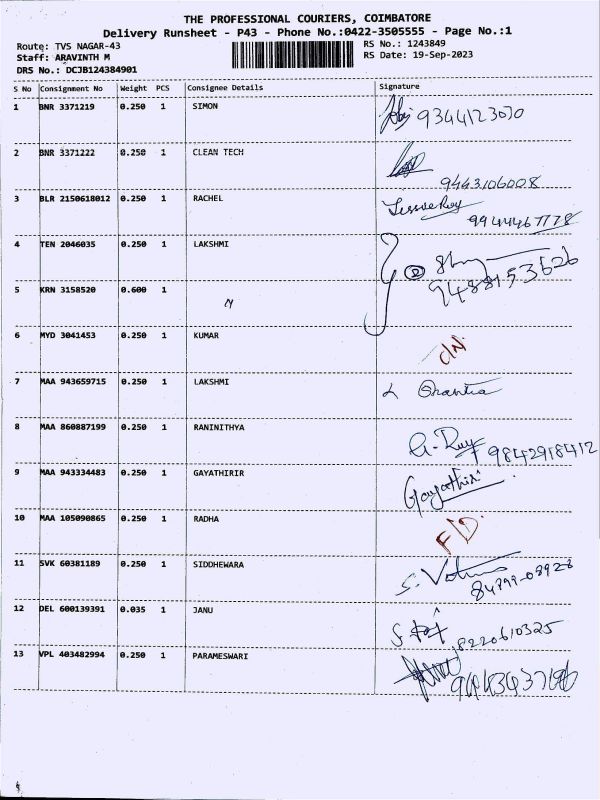 THE PROFESSIONAL COURIERS, COIMBATORE
Delivery Runsheet - P43 - Phone No.:0422-3505555 - Page No.:1
Route: TVS NAGAR-43 RS No.: 1243849
Staff: ARAVINTH M RS Date: 19-Sep-2023
DRS No.: DCJB124384901
S No Consignment No Weight PCS Consignee Details Signature
1 BNR 3371219 0.250 1 SIMON 9344123070
2 BNR 3371222 0.250 1 CLEAN TECH
9443106008
3 BLR 2150618012 0.250 1 RACHEL
9944467778
4 TEN 2046035 0.250 1 LAKSHMI ②
9488153626
5 KRN 3158520 0.600 1
6 MYD 3041453 0.250 1 KUMAR
7 MAA 943659715 0.250 1 LAKSHMI
8 MAA 860887199 0.250 1 RANINITHYA
9842918412
9 MAA 943334483 0.250 1 GAYATHIRIR
Gayathiri
10 MAA 105090865 0.250 1 RADHA
F/D.
11 SVK 60381189 0.250 1 SIDDHEWARA
84899-08928
12 DEL 600139391 0.035 1 JANU
8220610325
13 VPL 403482994 0.250 1 PARAMESWARI